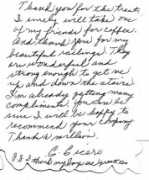 Thank you for the treat
I surely will take one
of my friends for coffee.
And thank you for my
beautiful railings. They
are wonderful and
strong enough to get me
up and down the stairs
I'm already getting many
compliments. You can bet
sure I will be happy to
recommend your company
Thanks a million.
J. Cicero